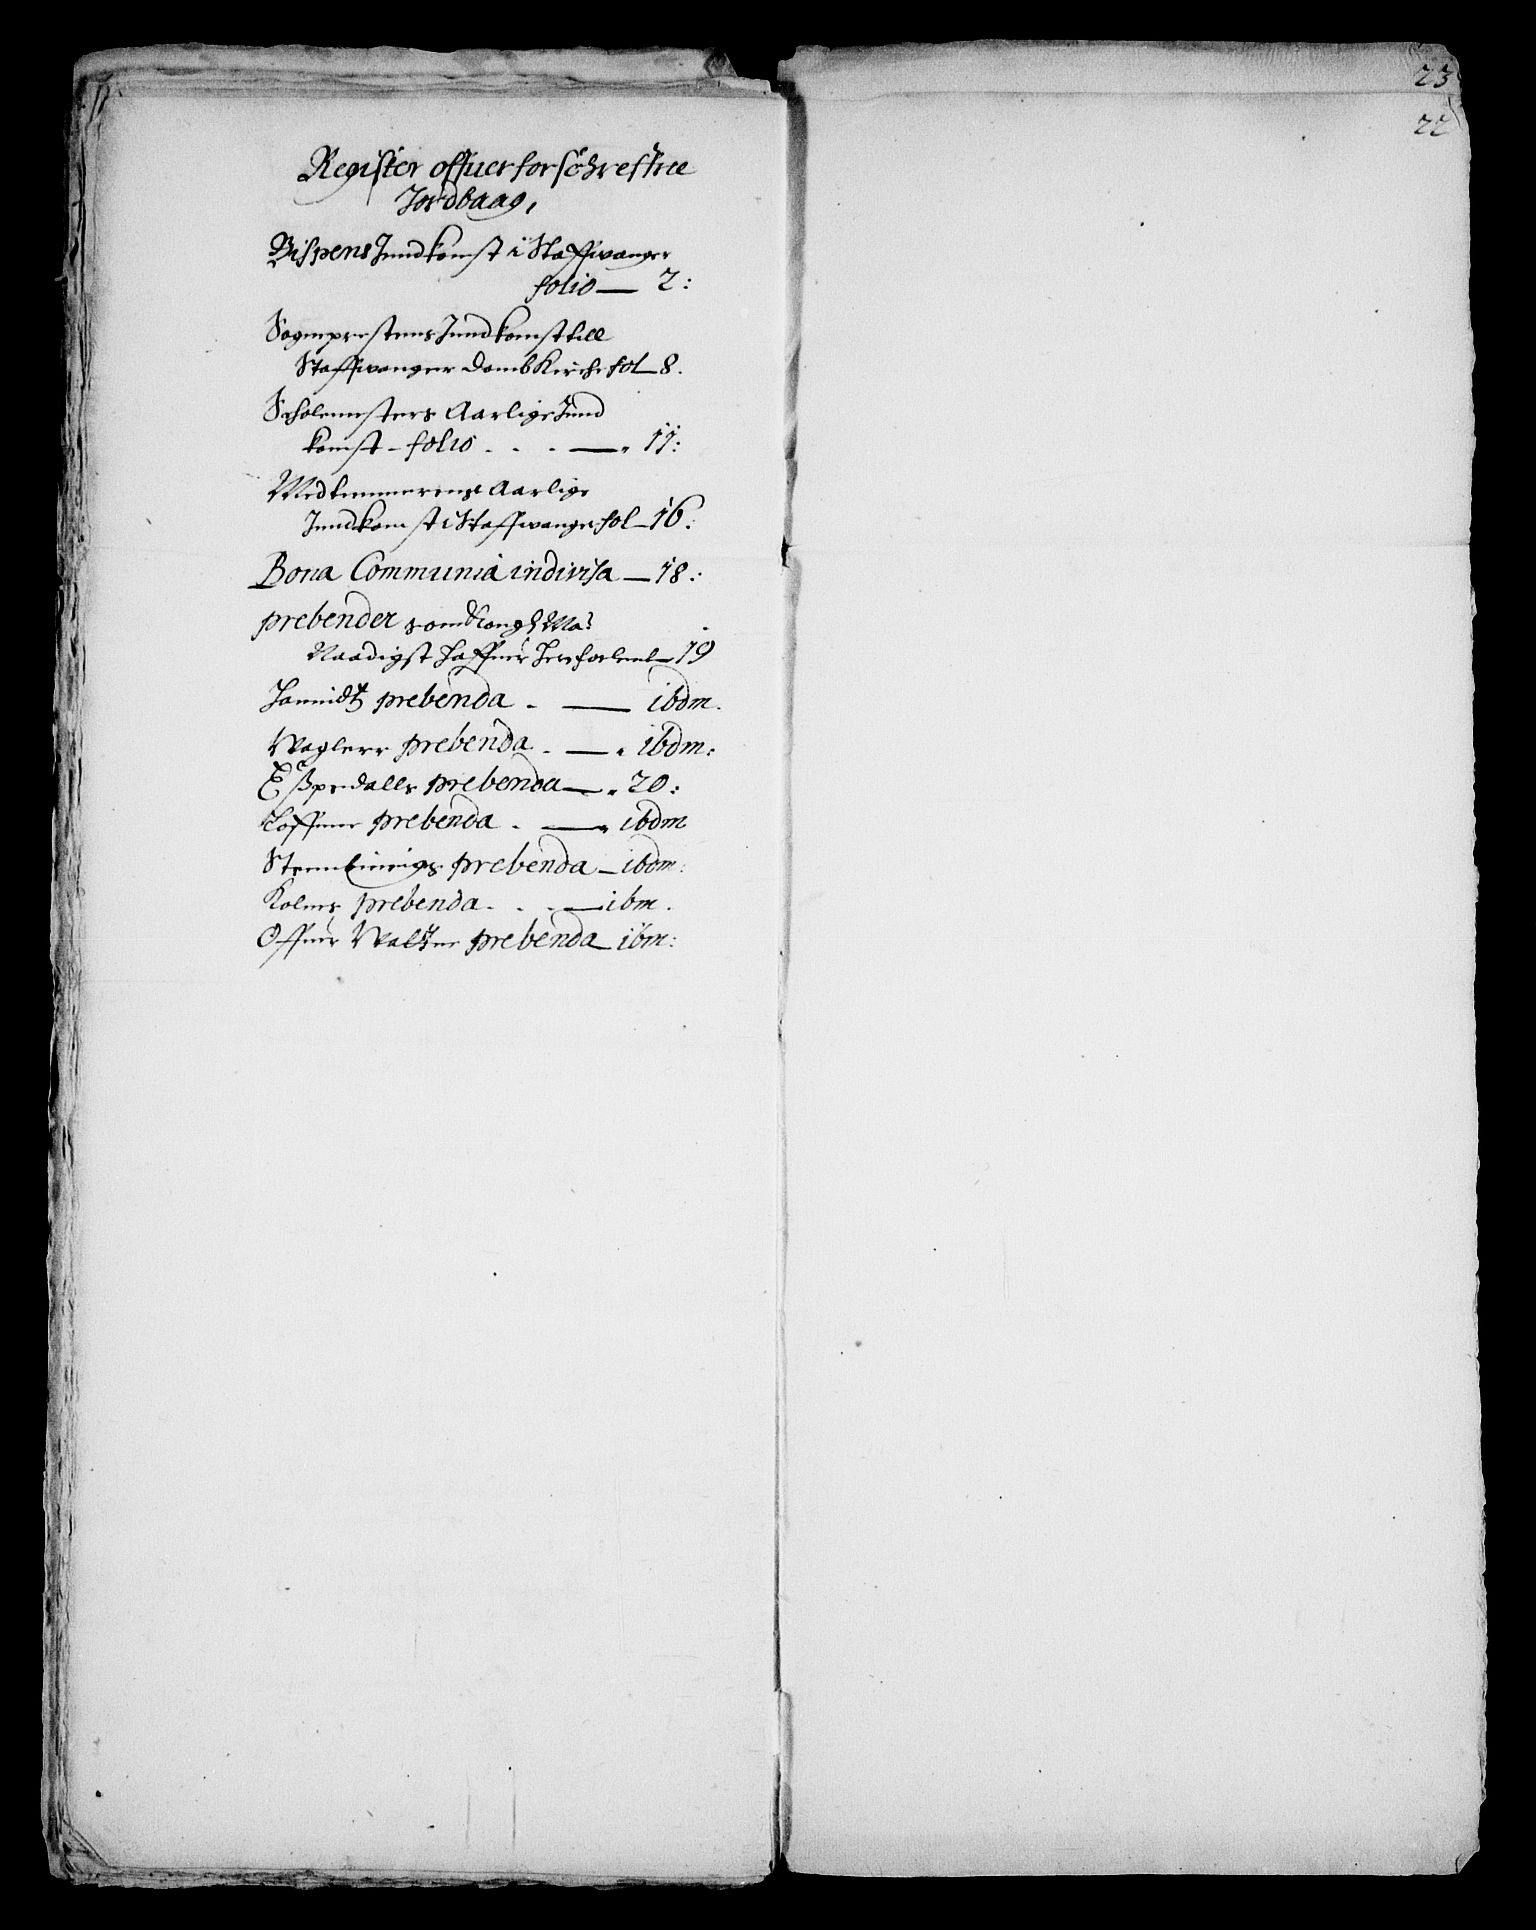 Register offuer forschreffne
Jordbaag,
Bispens Inndkomst i Staffwanger
folio — 2:
Sogneprestens Inndkomst till
Staffwanger Domb Kirche fol — 8.
Scholemesters Aarlige Innd
komst - folio . . . — 11:
Medtiennerens Aarlige
Inndkomst i Staffwanger fol — 16:
Bona Communia indivisa — 18:
prebender som Kongl Ma:
Naadigst haffuer — 19
prebenda . — ibdm.
Waglers prebenda . — ibdm:
Eßpedalls prebenda — 20:
prebenda . — ibdm
prebenda — ibdm:
Kolnes prebenda . . . — ibm.
Offuer prebenda — ibm:
23
22